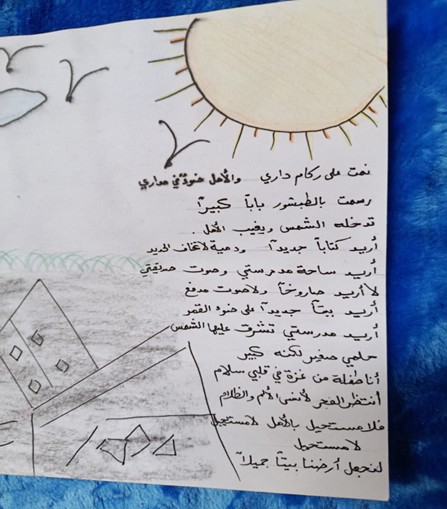 نمت على ركام داري والأمل ضوءٌ في مداري
رسمت بالطبشور باباً كبيراً
تدخله الشمس ويغيب الألم .
أريد كتاباً جديداً ودمية لا تخاف الحديد
أريد ساحة مدرستي وصوت صديقتي
لا أريد صاروخاً ولا صوت مدفع
أريد بيتاً جديداً على ضوء القمر
أريد مدرستي تشرق عليها الشمس
حلمي صغير لكنه كبير
أنا طفلة من غزة في قلبي سلام
أنتظر الفجر لأنسى الألم والظلام
فلا مستحيل بالأمل لا مستحيل
لا مستحيل
لنجعل أرضنا بيتاً جميلاً